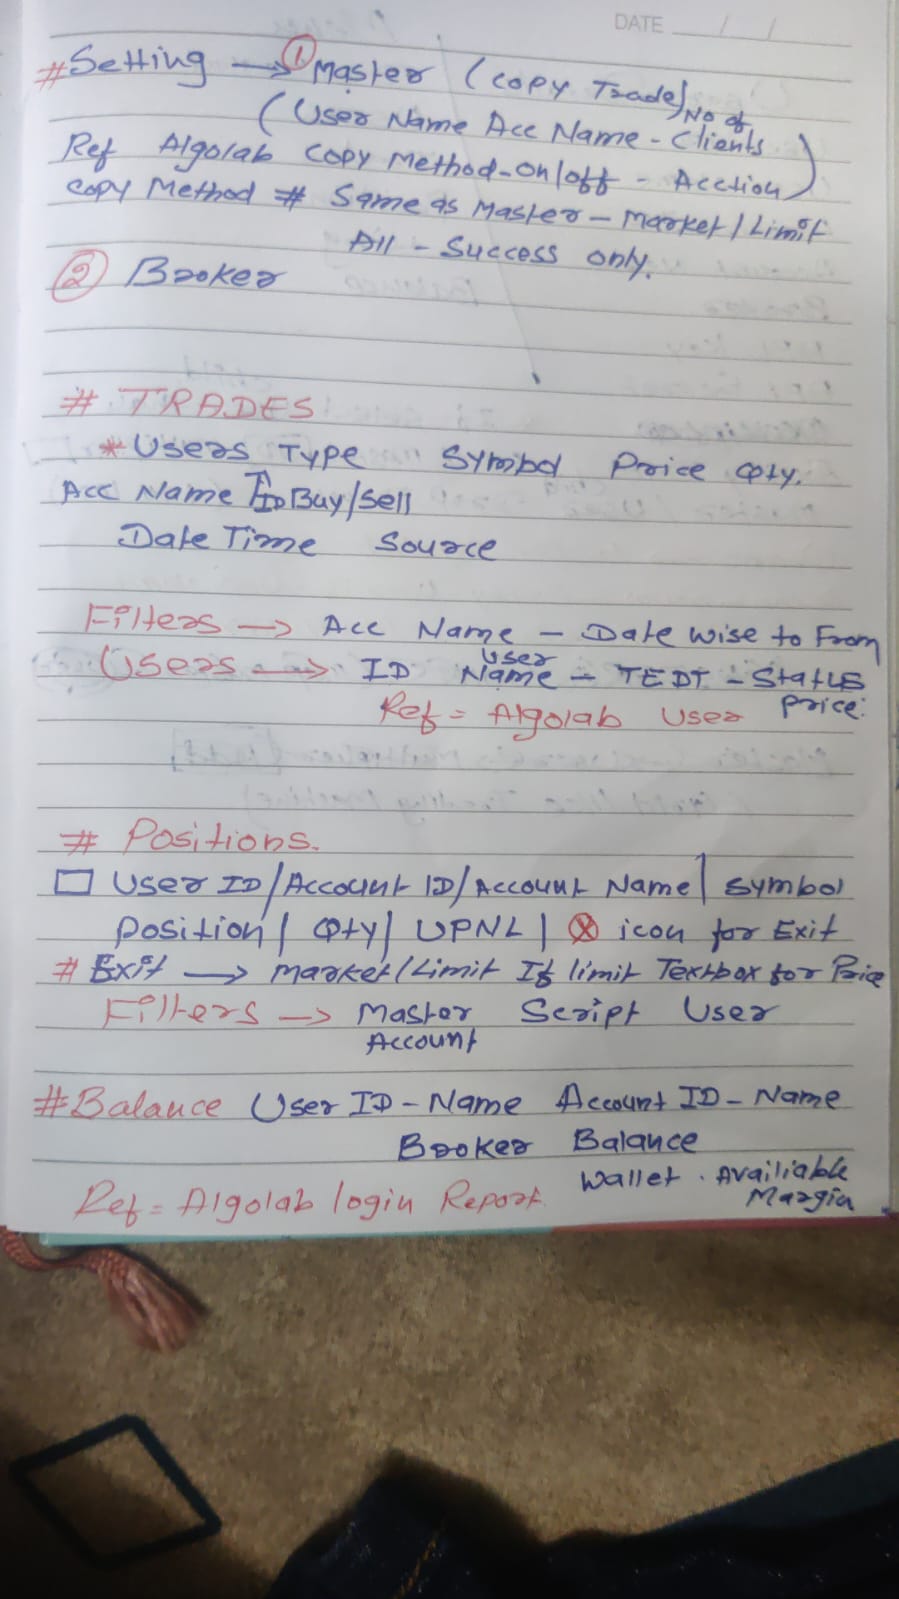 DATE / /
# Setting → ① Master (Copy Trade) No of
(User Name Acc Name - Clients
Ref Algolab Copy Method - on/off - Acction)
Copy Method # Same as Master - Market/Limit
All - Success only.
② Broker
# TRADES
* Users Type Symbol Price Qty.
Acc Name ID Buy/Sell
Date Time Source
Filters → Acc Name - Date wise to From
Users → ID User Name - TEDT - Status
Ref = Algolab User Price.
# Positions.
□ User ID/Account ID/Account Name | Symbol
Position | Qty | UPNL | ⓧ icon for Exit
# Exit → Market/Limit If limit Textbox for Price
Filters → Master Script User
Account
# Balance User ID - Name Account ID - Name
Broker Balance
Wallet . Availiable
Ref = Algolab login Report. Margin